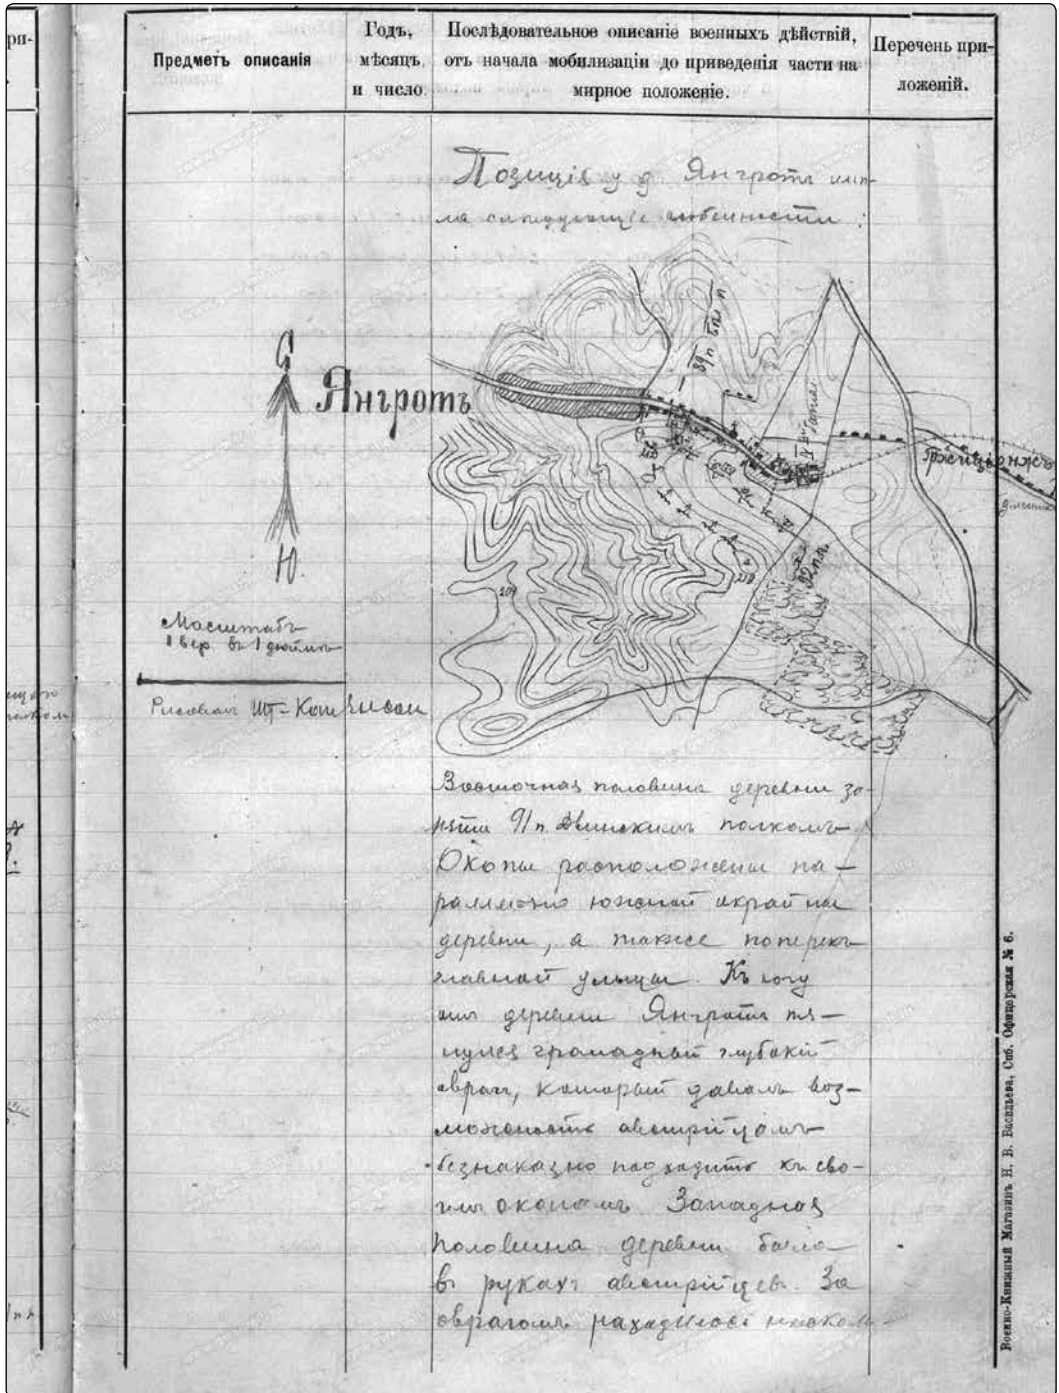 Предметъ описанія
Годъ,
мѣсяцъ
и число.
Послѣдовательное описаніе военныхъ дѣйствій,
отъ начала мобилизаціи до приведенія части на
мирное положеніе.
Перечень при-
ложеній.
Позиція у д. Янгротъ имѣ-
ла слѣдующіе особенности:
С
Янгротъ
Ю.
Масштабъ
1 вер. въ 1 дюймѣ
Рисовалъ Шт-Кап
89 п Бѣл п
92 п п
209
218
Восточная половина деревни за-
нята 91 п. Двинскимъ полкомъ
Окопы расположены па-
раллельно южной окраины
деревни, а также поперекъ
главной улицы. Къ югу
отъ деревни Янгротъ тя-
нулся громадный глубокій
оврагъ, который давалъ воз-
можность австрійцамъ
безнаказно подходить къ сво-
имъ окопамъ Западная
половина деревни была
въ рукахъ австрійцевъ. За
оврагомъ находилось нѣсколь-
Военно-Книжный Магазинъ Н. В. Васильева, Спб. Офицерская № 6.